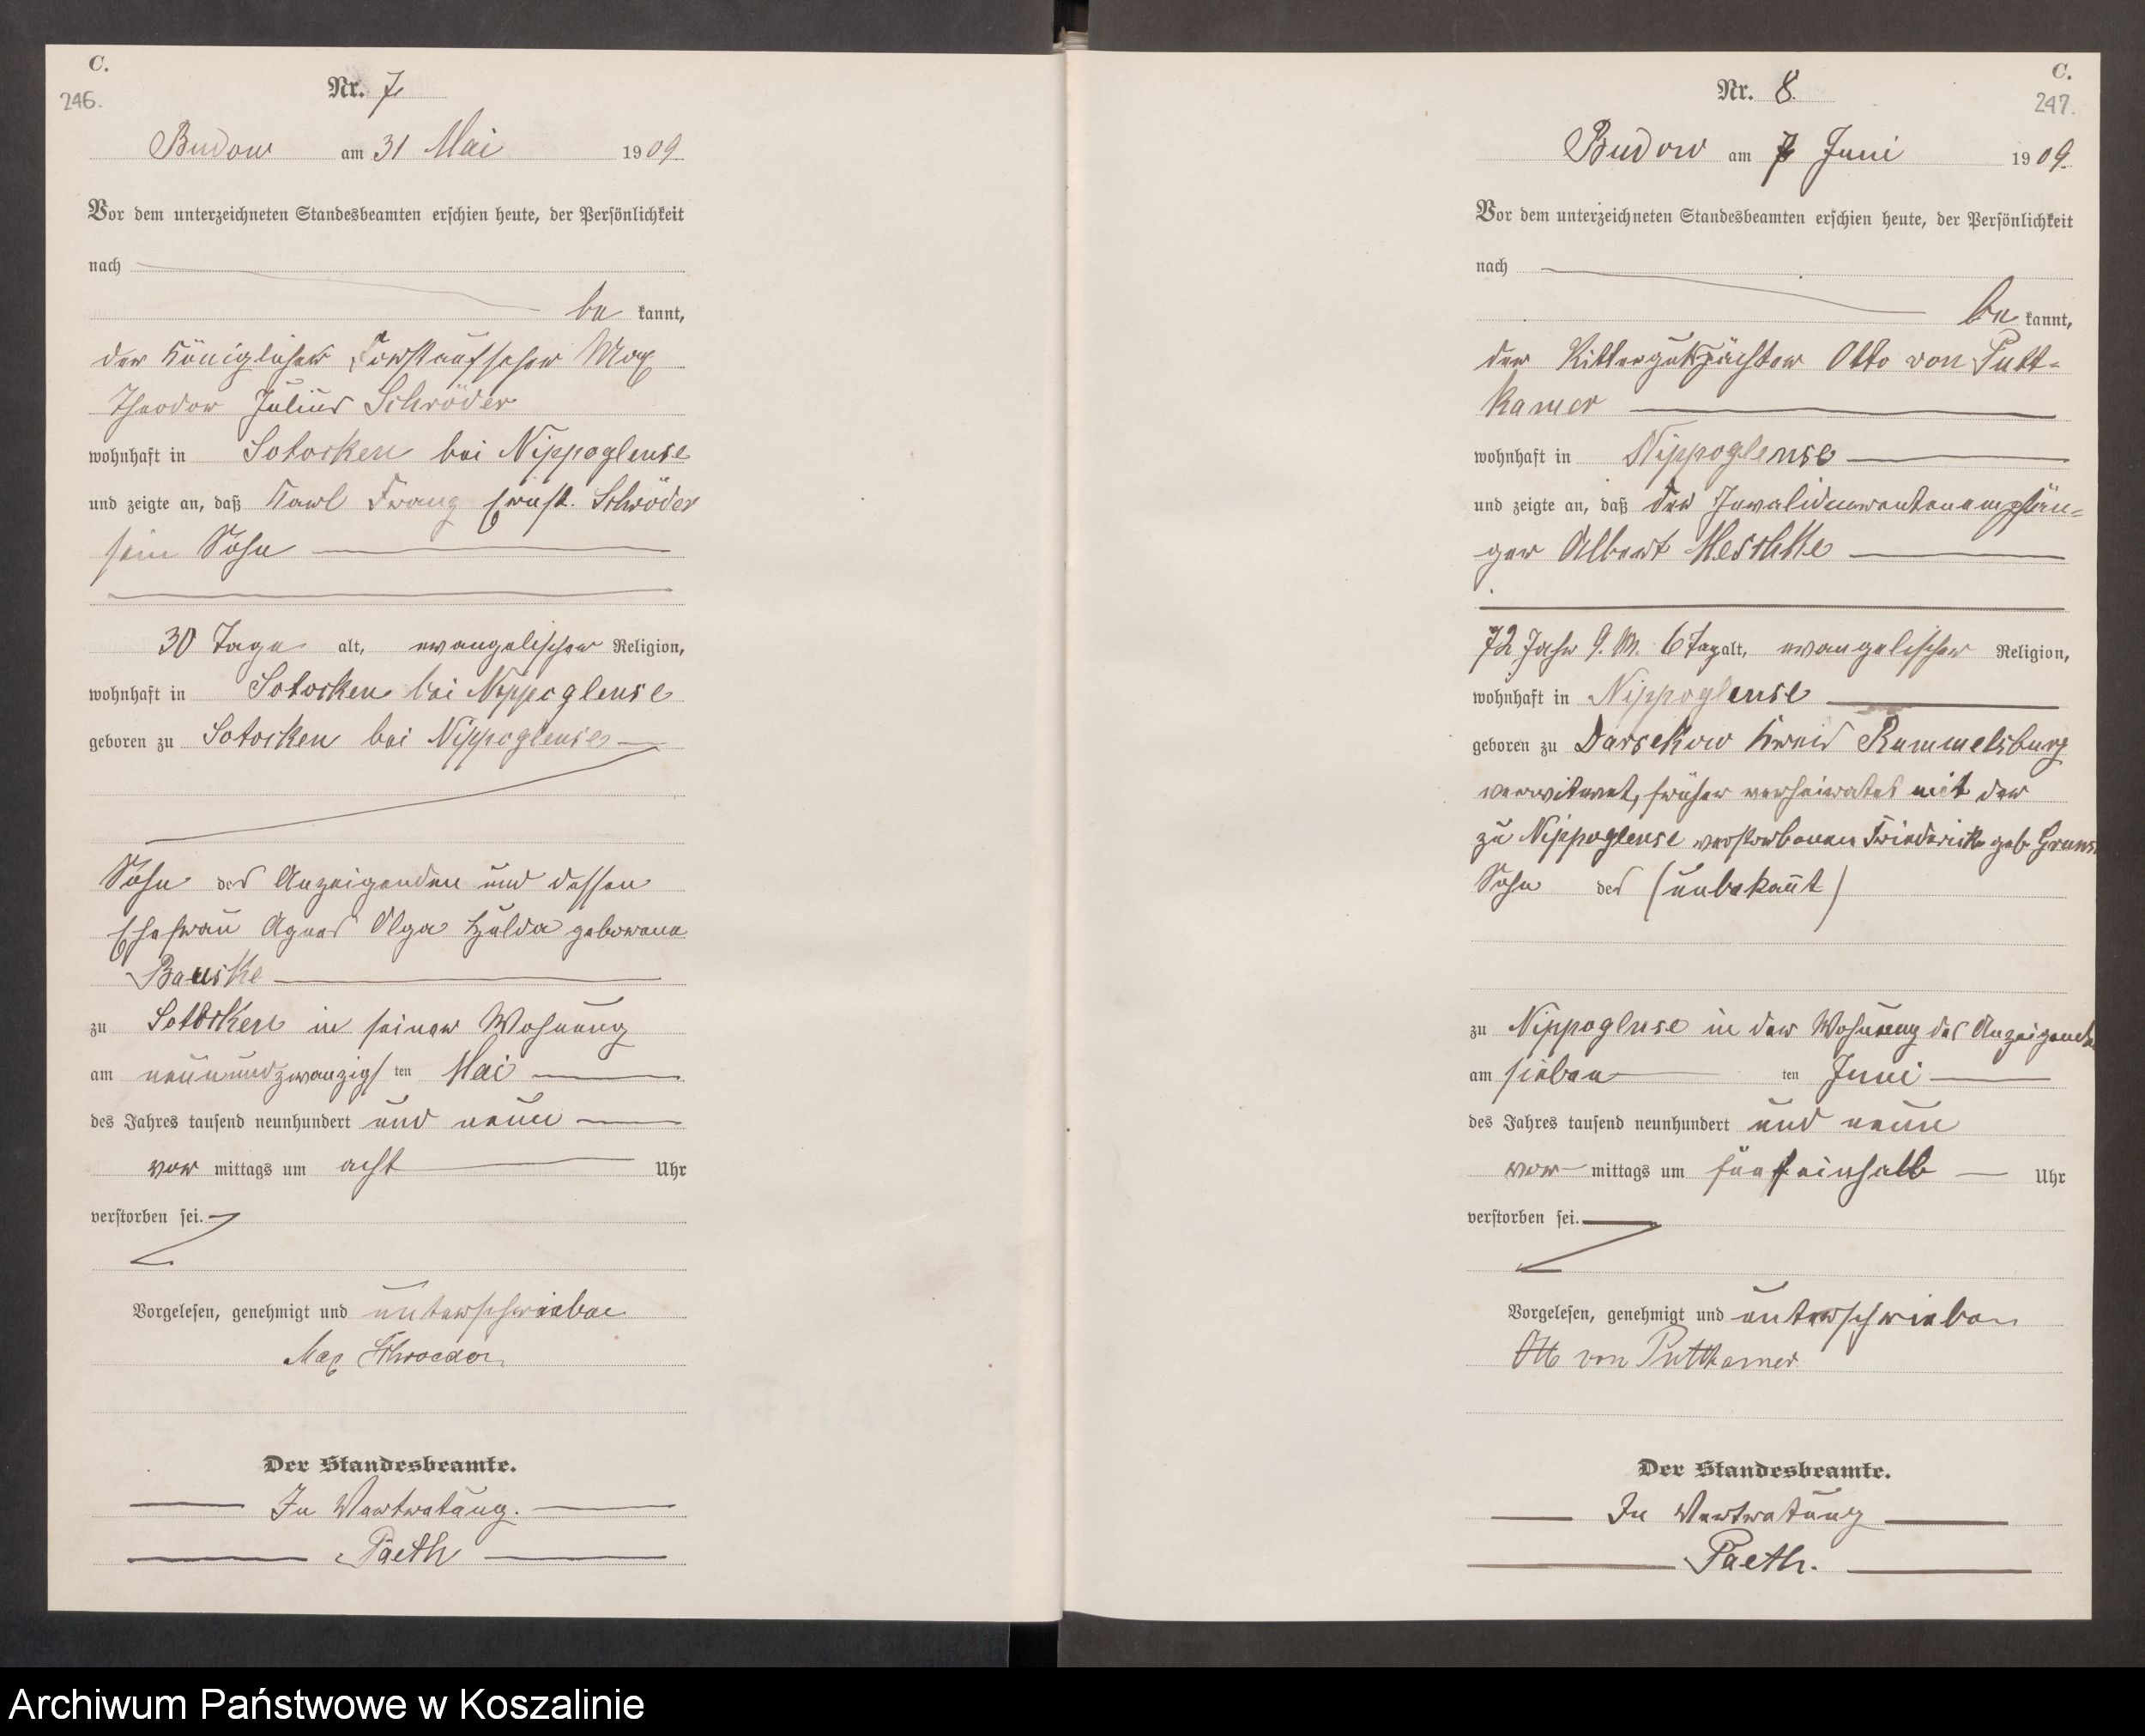 C.
246.
Nr. 7
Budow am 31 Mai 1909.
Vor dem unterzeichneten Standesbeamten erschien heute, der Persönlichkeit
nach
be kannt,
der Königlicher Forstaufseher Max
Theodor Julius Schröder
wohnhaft in Sotorken bei Nippoglense
und zeigte an, daß Karl Franz Ernst Schröder
sein Sohn
30 Tage alt, evangelischer Religion,
wohnhaft in Sotorken bei Nippoglense
geboren zu Sotorken bei Nippoglense
Sohn des Anzeigenden und dessen
Ehefrau Agnes Olga Hulda geborene
Bauske
zu Sotorken in seiner Wohnung
am neunundzwanzigsten Mai
des Jahres tausend neunhundert und neun
vor mittags um acht Uhr
verstorben sei.
Vorgelesen, genehmigt und unterschrieben
Max Schroeder
Der Standesbeamte.
In Vertretung.
Paeth
C.
247.
Nr. 8.
Budow am 7 Juni 1909.
Vor dem unterzeichneten Standesbeamten erschien heute, der Persönlichkeit
nach
be kannt,
der Rittergutspächter Otto von Putt-
kamer
wohnhaft in Nippoglense
und zeigte an, daß der Invalidenrentenempfän-
ger Albert Meschke
72 Jahr 9. M. 6 Tag alt, evangelischer Religion,
wohnhaft in Nippoglense
geboren zu Darsekow Kreis Rummelsburg
verwitwet, früher verheiratet mit der
zu Nippoglense verstorbenen Friederike geb.
Sohn des (unbekannt)
zu Nippoglense in der Wohnung des Anzeigenden
am sieben ten Juni
des Jahres tausend neunhundert und neun
vor mittags um fünfeinhalb Uhr
verstorben sei.
Vorgelesen, genehmigt und unterschrieben
Otto von Puttkamer
Der Standesbeamte.
In Vertretung
Paeth.
Archiwum Państwowe w Koszalinie